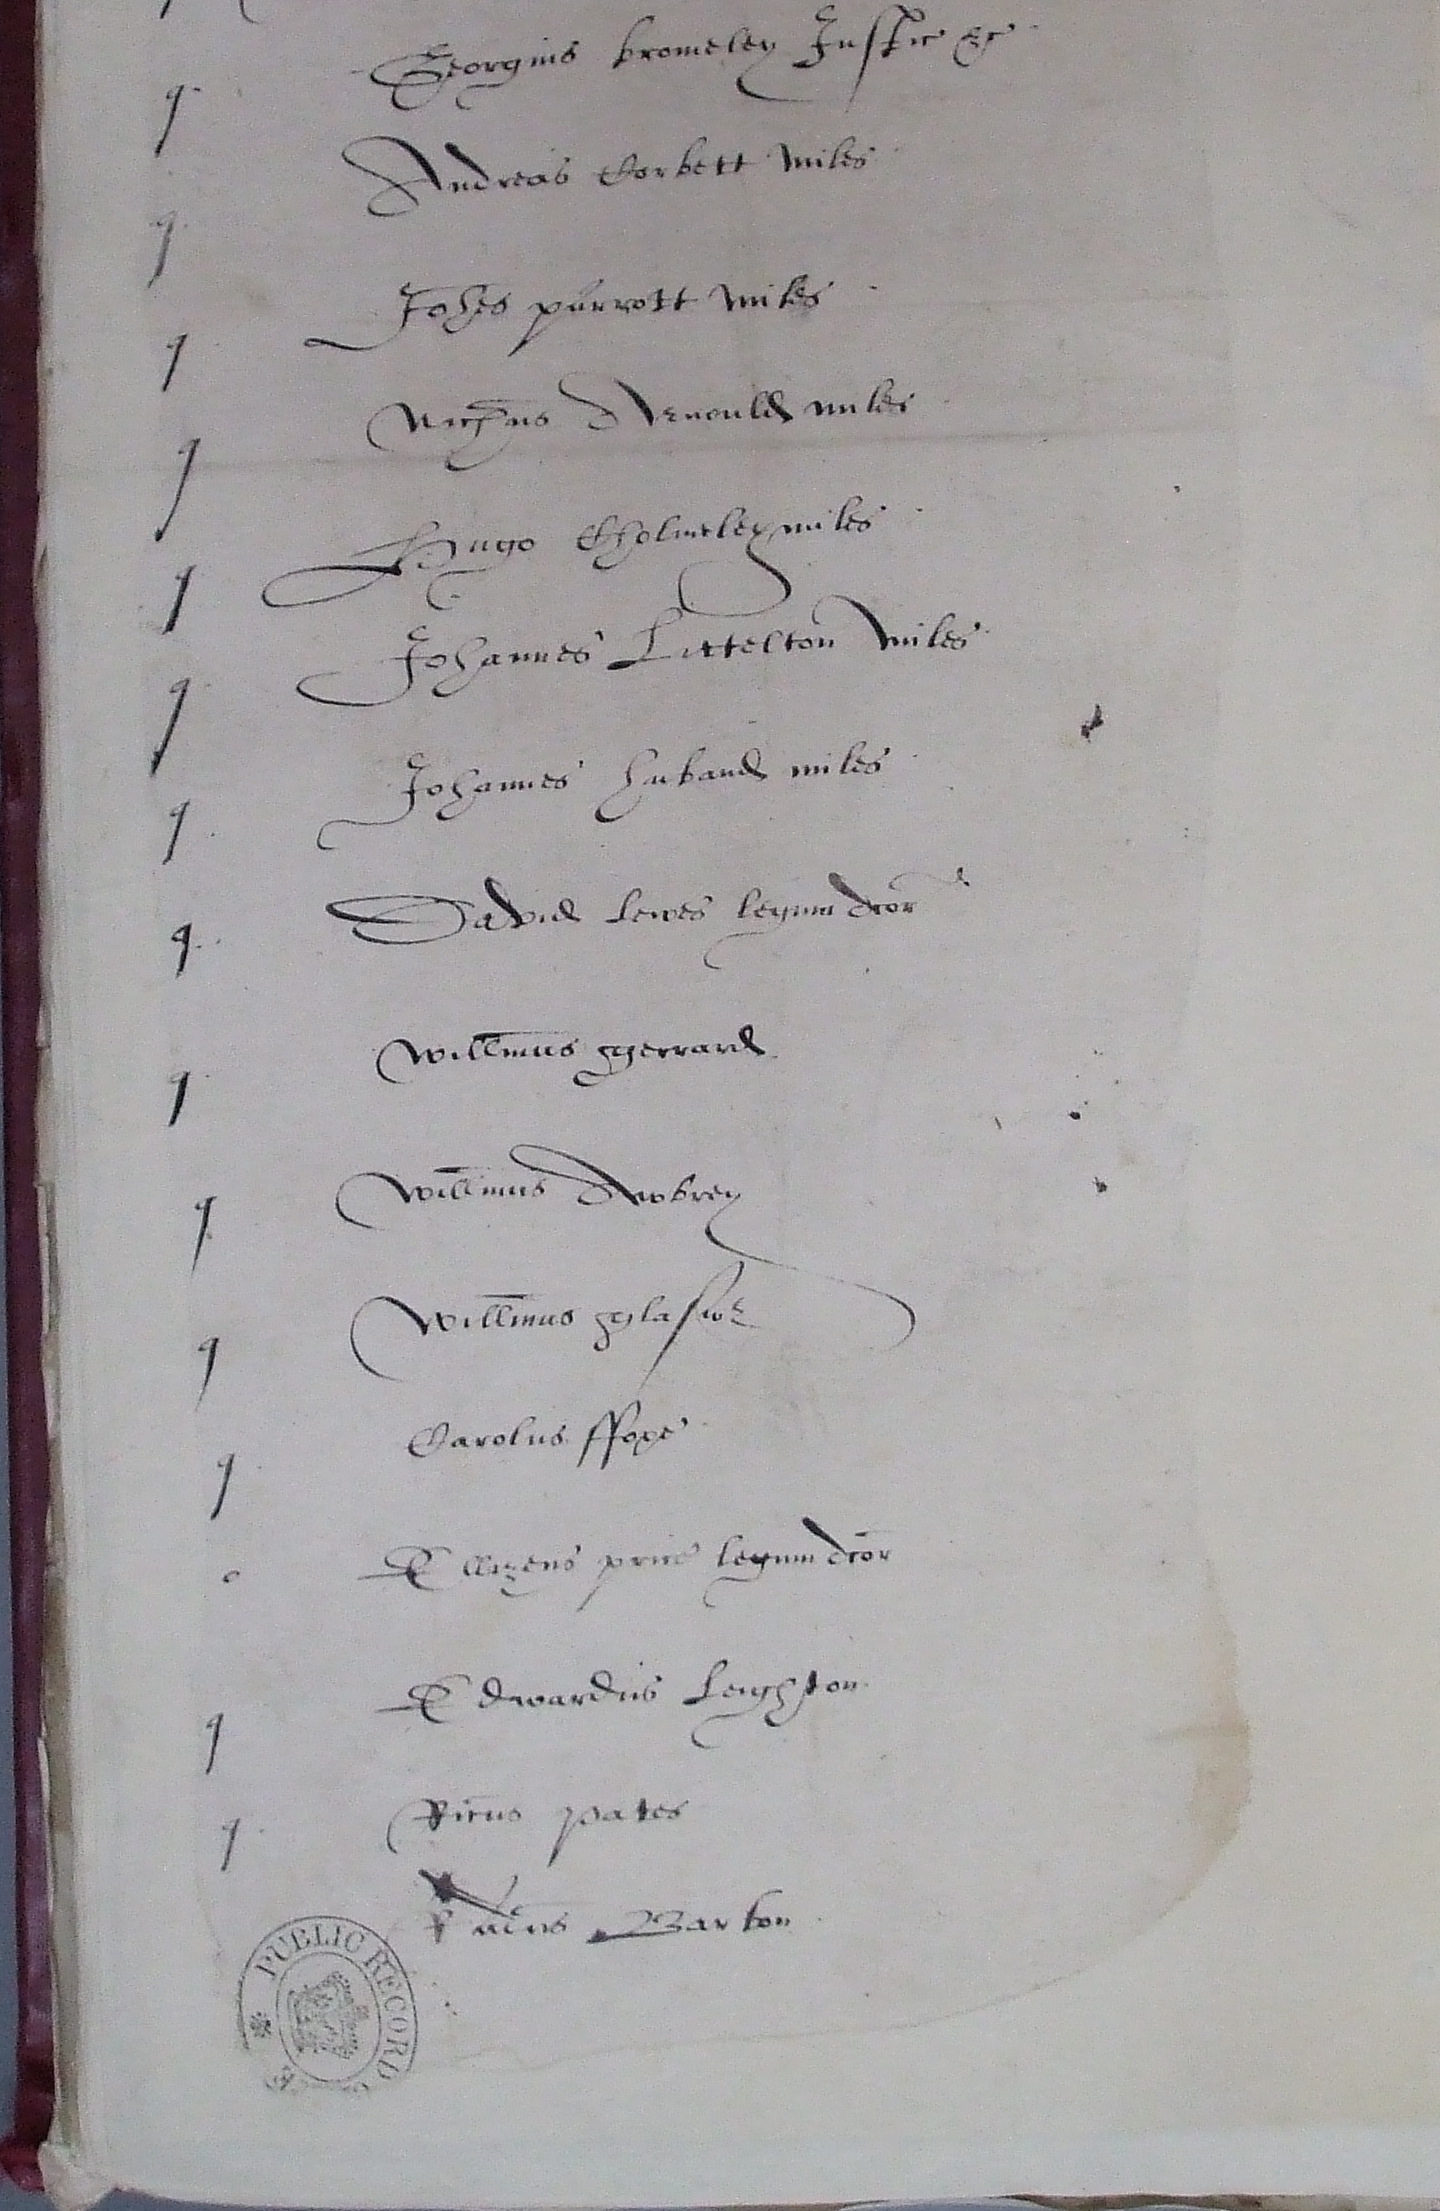 q Georgius bromeley Justic &c
q Andreas Corbett miles
q Johes purrott miles
q Nichus Arnould miles
q Hugo Cholmeley miles
q Johannes Littelton miles
q Johannes huband miles
q David Lewes legum dcor
q Willmus gerrard
q Willmus Awbrey
q Willmus glasior
q Carolus ffoxe
Ellizeus price legum dcor
q Edwardus Leighton
q Ricus pates
Radus Barton
PUBLIC RECORD